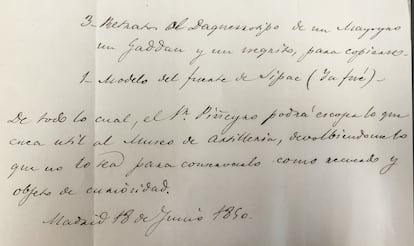 3_ Retratos al Daguerrotipo de un Mayoyao
un Gaddan y un negrito, para copiarse_
1_ Modelo del fuerte de Sipac (Ya fué)_
De todo lo cual, el Sr. Piñeyro podrá escoger lo que
crea util al Museo de Artilleria, devolbiendome lo
que no lo sea para conservarlo como recuerdo y
objeto de curiosidad.
Madrid 18 de Junio 1850.